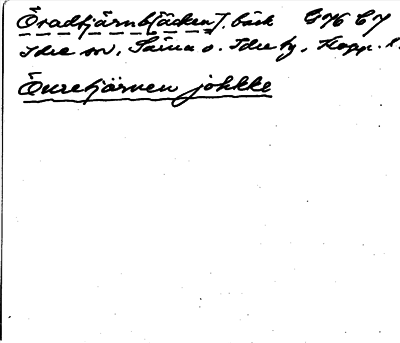 Öradtjärnbäcken], bäck GK C7
Idre sn, Särna o. Idre tg, Kopp. l.
Öuretjärnen johkke